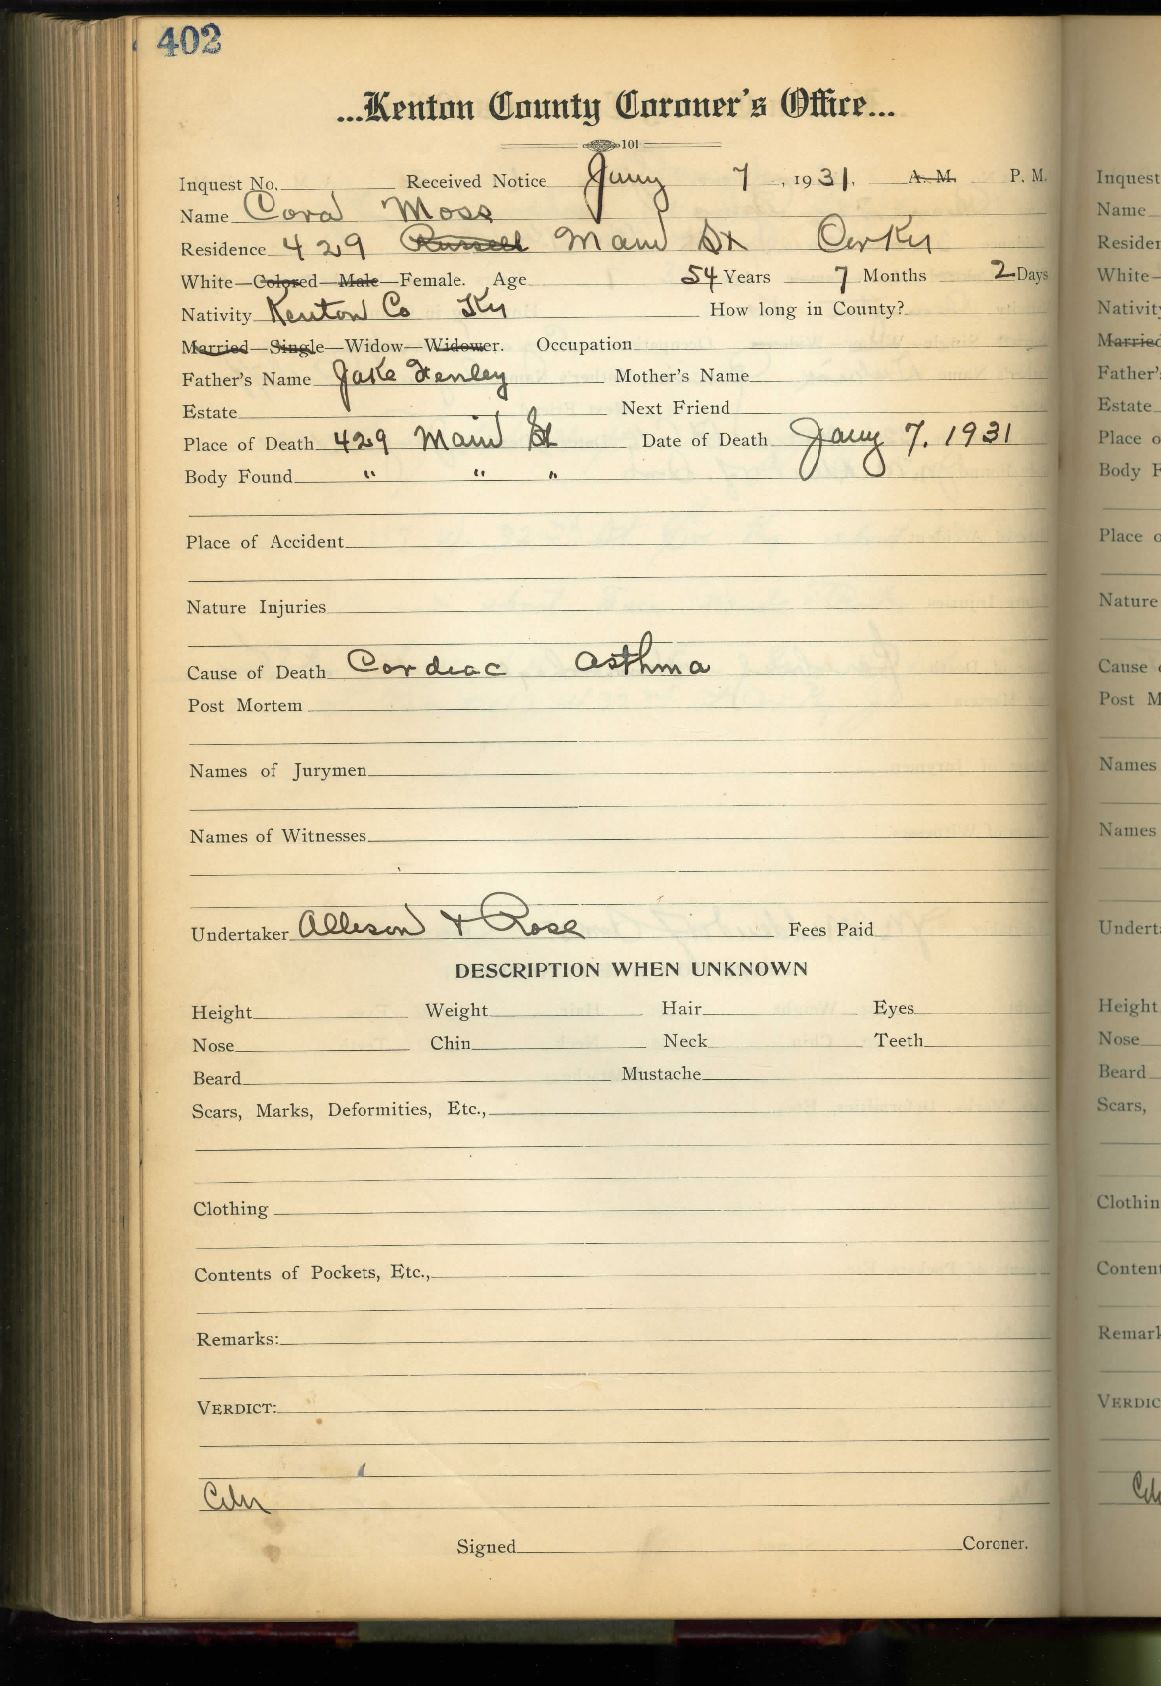 402
...Kenton County Coroner's Office...
101
Inquest No. Received Notice Jany 7, 1931, A. M. P. M.
Name Cora Moss
Residence 429 Russell Main St Cov Ky
White—Colored—Male—Female. Age 54 Years 7 Months 2 Days
Nativity Kenton Co Ky How long in County?
Married—Single—Widow—Widower. Occupation
Father's Name Jake Fenley Mother's Name
Estate Next Friend
Place of Death 429 Main St Date of Death Jany 7. 1931
Body Found " " "
Place of Accident
Nature Injuries
Cause of Death Cardiac asthma
Post Mortem
Names of Jurymen
Names of Witnesses
Undertaker Allison & Rose Fees Paid
DESCRIPTION WHEN UNKNOWN
Height Weight Hair Eyes
Nose Chin Neck Teeth
Beard Mustache
Scars, Marks, Deformities, Etc.,
Clothing
Contents of Pockets, Etc.,
Remarks:
VERDICT:
Signed Coroner.
Inquest
Name
Residen
White—
Nativity
Married
Father's
Estate
Place o
Body F
Place o
Nature
Cause
Post M
Names
Names
Underta
Height
Nose
Beard
Scars,
Clothin
Content
Remark
VERDIC